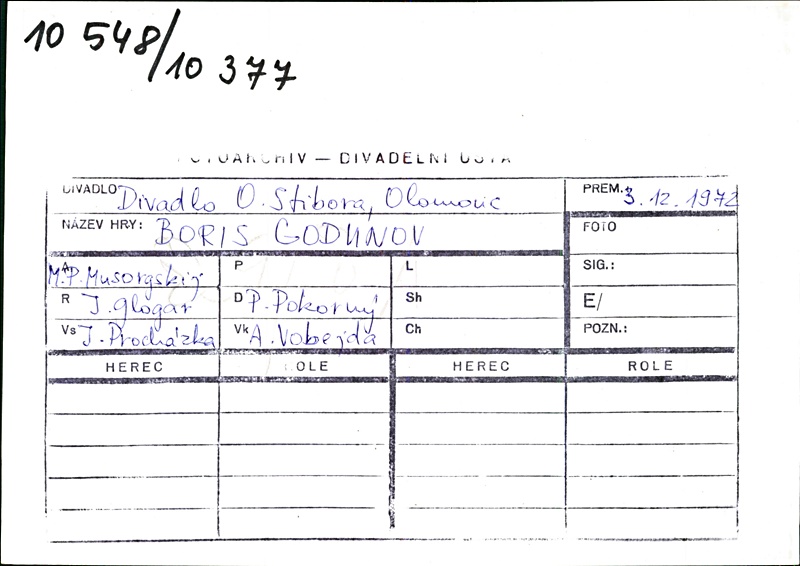 10 548/10 377
FOTOARCHIV — DIVADELNÍ ÚSTA
DIVADLO Divadlo O. Stibora, Olomouc PREM.: 3. 12. 1972
NÁZEV HRY: BORIS GODUNOV FOTO
A M.P. Musorgskij P L SIG.:
R J. Glogar D P. Pokorný Sh E/
Vs J. Procházka Vk A. Vobejda Ch POZN.:
HEREC ROLE HEREC ROLE